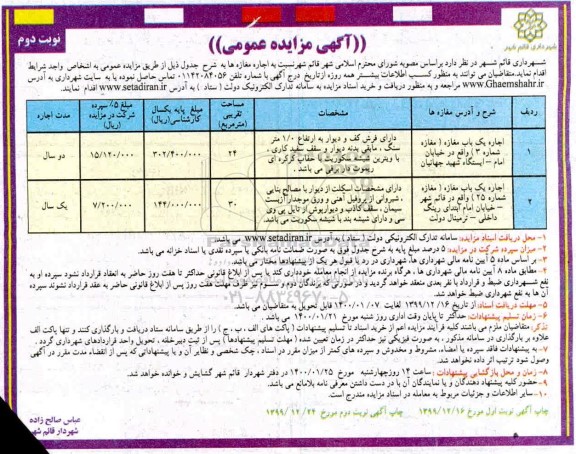 نوبت دوم
((آگهی مزایده عمومی))
شهرداری قائم شهر
شهرداری قائم شهر در نظر دارد براساس مصوبه شورای محترم اسلامی شهر قائم شهرنسبت به اجاره مغازه ها به شرح جدول ذیل از طریق مزایده عمومی به اشخاص واجد شرایط
اقدام نماید.متقاضیان می توانند به منظور کسب اطلاعات بیشتر همه روزه ازتاریخ درج آگهی با شماره تلفن ۰۱۱۴۲۰۸۴۰۵۶ تماس حاصل نموده یا به سایت شهرداری به آدرس
www.Ghaemshahr.ir مراجعه و به منظور دریافت و خرید اسناد مزایده به سامانه تدارک الکترونیک دولت ( ستاد ) به آدرس www.setadiran.ir اقدام نمایند.
ردیف شرح و آدرس مغازه ها مشخصات مساحت تقریبی (مترمربع) مبلغ پایه یکسال کارشناسی(ریال) مبلغ ۵٪ سپرده شرکت در مزایده (ریال) مدت اجاره
۱ اجاره یک باب مغازه ( مغازه شماره ۳ ) واقع در خیابان امام – ایستگاه شهید جهانیان
دارای فرش کف و دیوار به ارتفاع ۱/۰ متر سنگ ، مابقی بدنه دیوار و سقف سفید کاری ، با ویترین شیشه سکوریت با حفاب کرکره ای ریموت دار برقی می باشد .
۲۴ ۳۰۲/۴۰۰/۰۰۰ ۱۵/۱۲۰/۰۰۰ دو سال
۲ اجاره یک باب مغازه ( مغازه شماره ۲۵ ) واقع در قائم شهر – خیابان امام ابتدای رینگ داخلی – ترمینال دولت
دارای مشخصات اسکلت از دیوار با مصالح بنایی ، شیروانی از پروفیل آهنی و ورق موجدار آزبست سیمان ، سقف کاذب و دیوارپوش از تایل پی وی سی و دارای شیشه بند با شیشه سکوریت می باشد.
۳۰ ۱۴۴/۰۰۰/۰۰۰ ۷/۲۰۰/۰۰۰ یک سال
۱- محل دریافت اسناد مزایده: سامانه تدارک الکترونیکی دولت ( ستاد ) به آدرس www.setadiran.ir می باشد.
۲- میزان سپرده شرکت در مزایده: ۵ درصد مبلغ پایه به شرح جدول فوق به صورت ضمانت نامه بانکی یا سپرده نقدی یا اسناد خزانه می باشد.
۳- بر اساس ماده ۵ آیین نامه مالی شهرداری ها ، شهرداری در رد یا قبول هر یک از پیشنهادها مختار می باشد.
۴- مطابق ماده ۸ آیین نامه مالی شهرداری ها ، هرگاه برنده مزایده از انجام معامله خودداری کند یا پس از ابلاغ قانونی حداکثر تا هفت روز حاضر به انعقاد قرارداد نشود سپرده او به
نفع شهرداری ضبط و قرارداد با نفر بعدی منعقد خواهد گردید و در صورتی که برندگان دوم و سوم نیز ظرف مهلت هفت روز پس از ابلاغ قانونی حاضر به عقد قرارداد نشوند سپرده
آن ها به نفع شهرداری ضبط خواهد شد.
۵- مهلت دریافت اسناد: از تاریخ ۱۳۹۹/۱۲/۱۶ لغایت ۱۴۰۰/۰۱/۰۷ قابل تحویل به متقاضیان می باشد.
۶- زمان تسلیم پیشنهادات: حداکثر تا پایان وقت اداری روز شنبه مورخ ۱۴۰۰/۰۱/۲۱ می باشد .
تذکر: متقاضیان ملزم می باشند کلیه فرآیند مزایده اعم از خرید اسناد تا تسلیم پیشنهادات ( پاکت های الف ، ب ، ج ) را از طریق سامانه ستاد دریافت و بارگذاری کنند و تنها پاکت الف
علاوه بر بارگذاری در سامانه مذکور ، به صورت فیزیکی نیز حداکثر در زمان تعیین شده ( مهلت تسلیم پیشنهادها ) پس از ثبت دبیرخانه ، تحویل واحد قراردادهای شهرداری گردد .
۷- به پیشنهادات فاقد سپرده یا امضاء، مشروط و مخدوش و سپرده های کمتر از میزان مقرر در اسناد ، چک شخصی و نظایر آن و یا پیشنهاداتی که پس از انقضاء مدت مقرر در آگهی
وصول شود ترتیب اثر داده نخواهد شد.
۸- زمان و محل بازگشایی پیشنهادات : ساعت ۱۴ روزچهارشنبه مورخ ۱۴۰۰/۰۱/۲۵ در دفتر شهردار قائم شهر گشایش و خوانده خواهد شد.
۹- حضور کلیه پیشنهاد دهندگان و یا نمایندگان آن با در دست داشتن معرفی نامه بلامانع می باشد.
۱۰- سایر اطلاعات و جزئیات مربوط به معامله در اسناد مزایده مندرج است.
چاپ آگهی نوبت اول مورخ ۱۳۹۹/۱۲/۱۶ چاپ آگهی نوبت دوم مورخ ۱۳۹۹/۱۲/۲۴
عباس صالح زاده
شهردار قائم شهر
۰۲۱-۸۸۳۴۹۶۷۰-۵